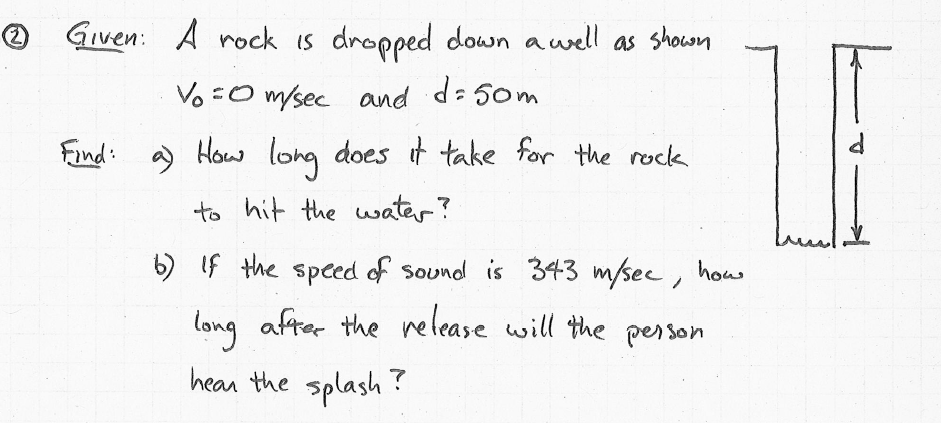 ② Given: A rock is dropped down a well as shown
V₀ = 0 m/sec and d = 50m
Find: a) How long does it take for the rock
d
to hit the water?
b) If the speed of sound is 343 m/sec, how
long after the release will the person
hear the splash?